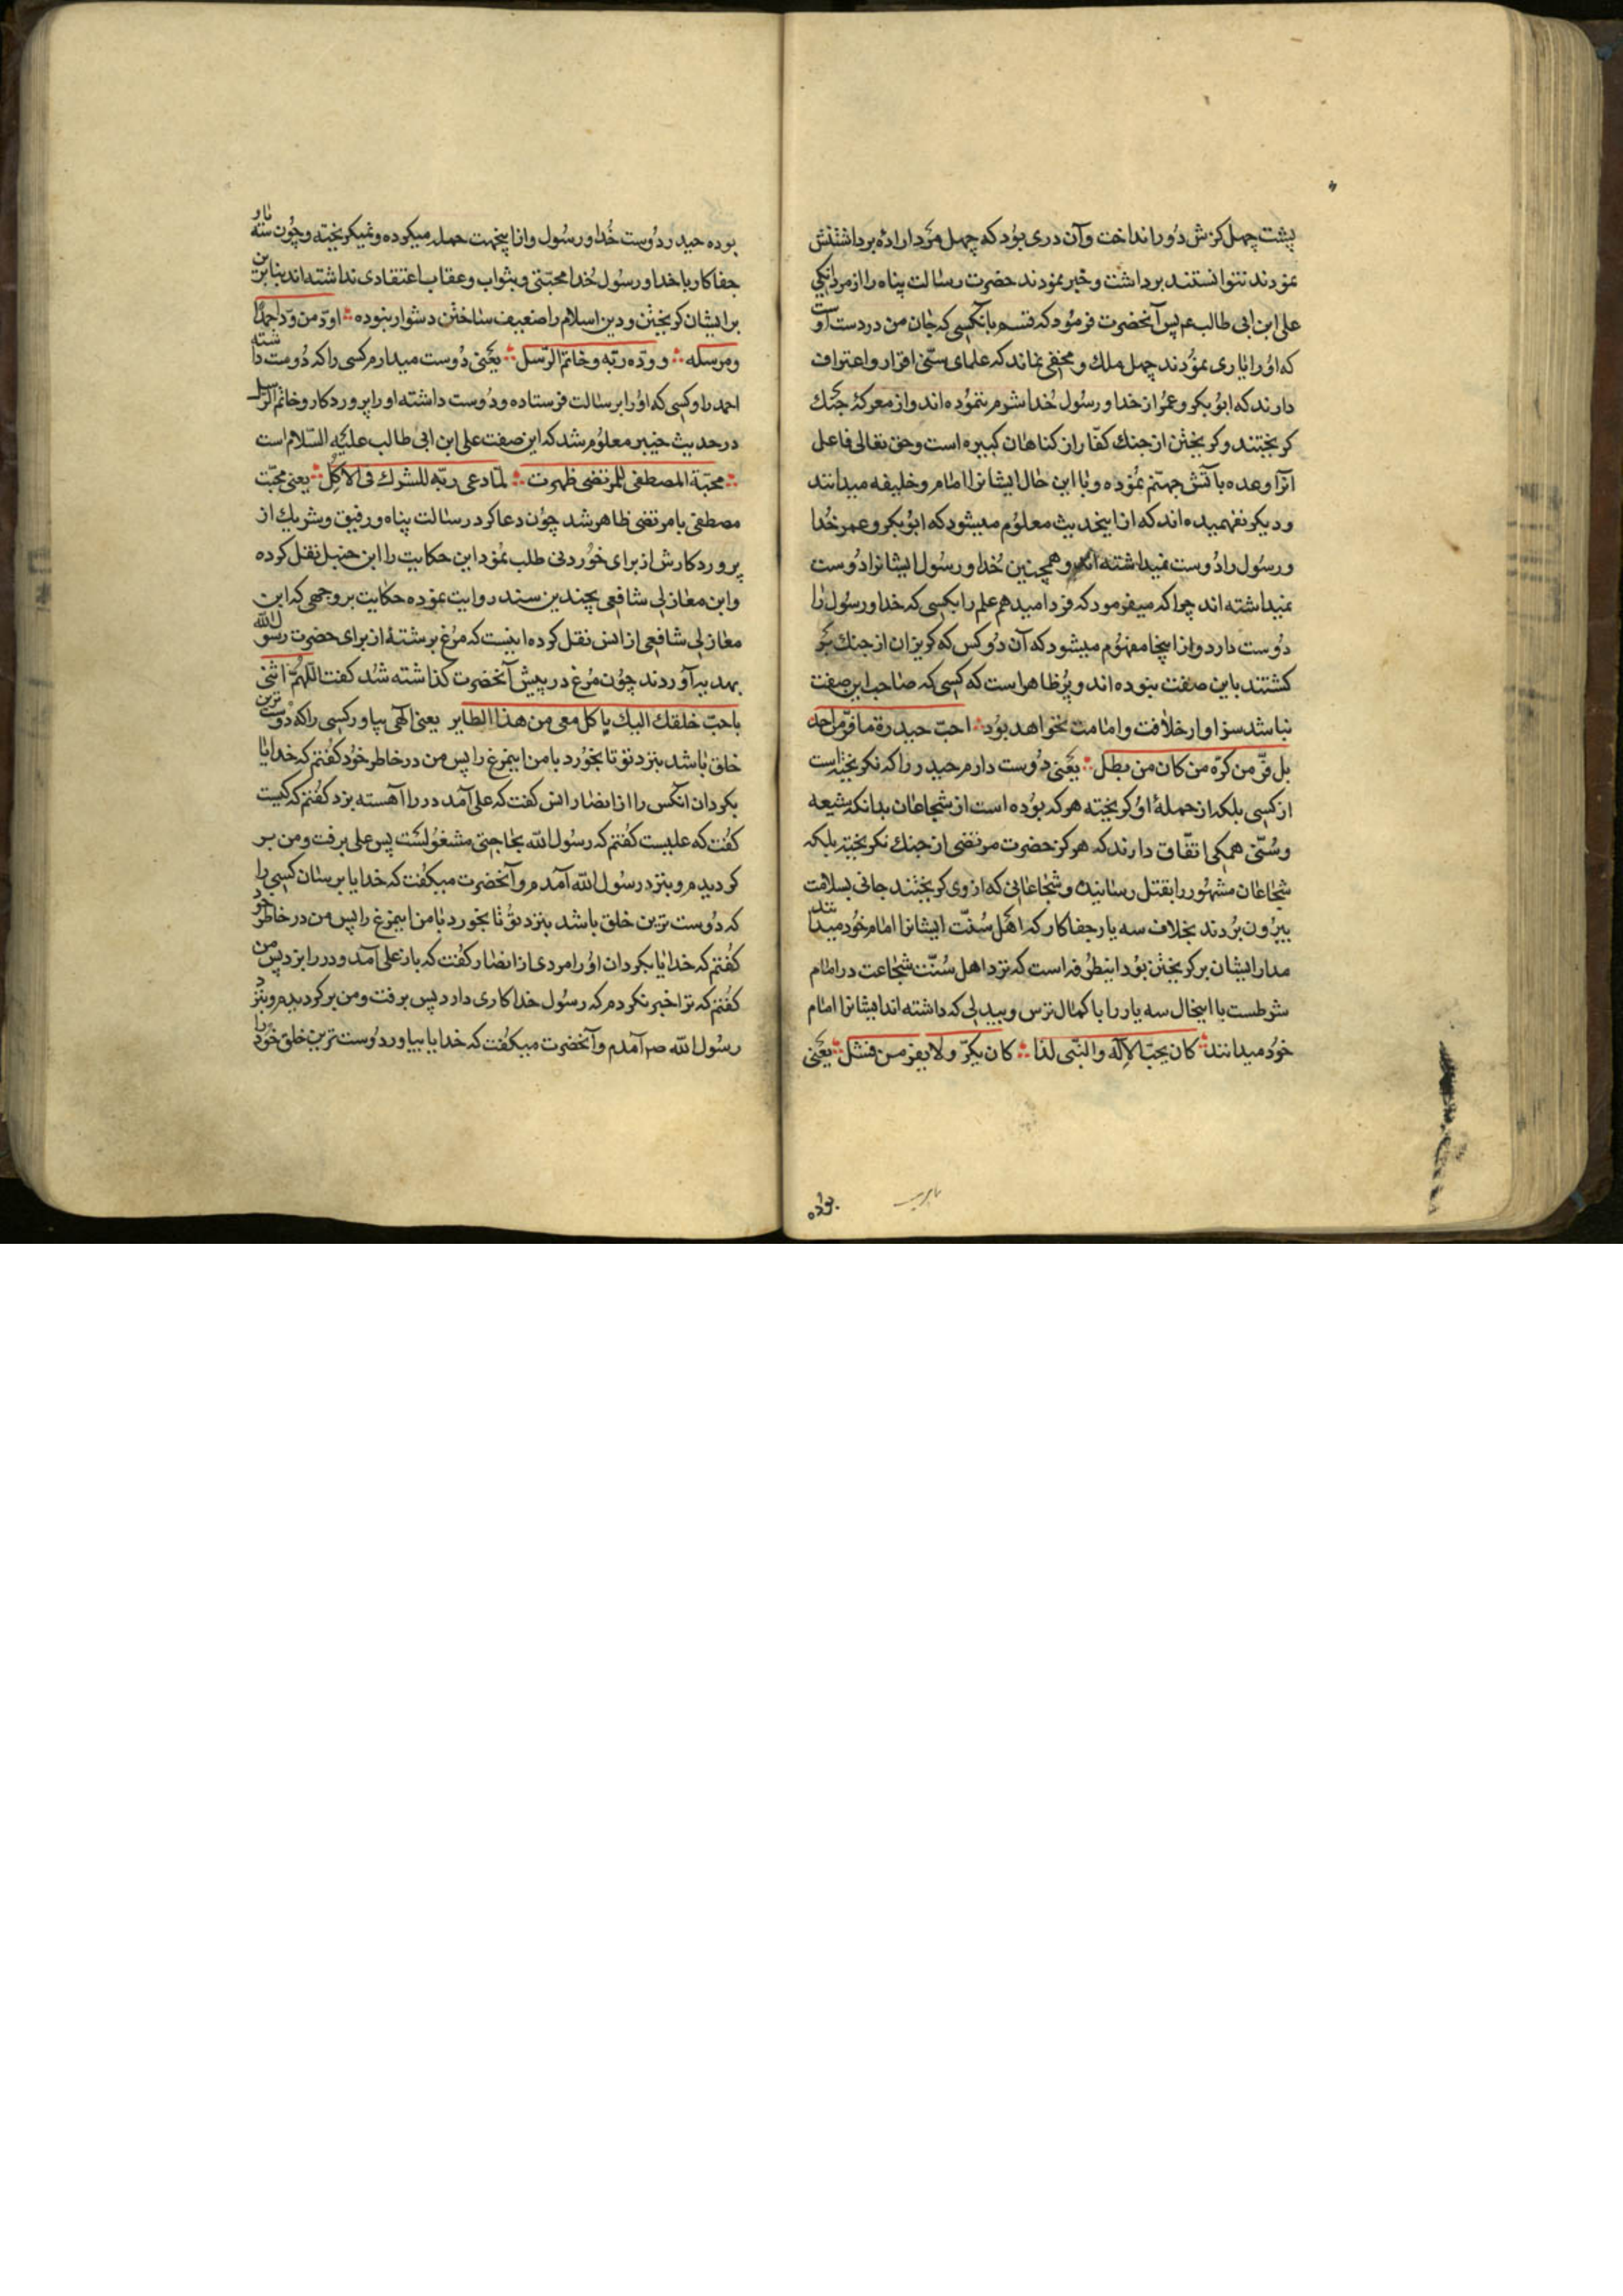 پشت چهل کزش دور انداخت وآن دری بود که چهل مرد اراده برداشتنش
نمودند نتوانستند برداشت وخبر نمودند حضرت رسالت پناه را از مردانکی
علی ابن ابی طالب عم پس آنحضرت فرمود که قسم بانکسی که جان من در دست اوست
که اورا یاری نمودند چهل ملك ومخفی نماند که علمای سنی اقرار واعتراف
دارند که ابوبکر وعمر از خدا ورسول خدا شرم ننموده اند واز معرکۀ جنك
کریختند وکریختن از جنك کفار از کناهان کبیره است وحق تعالی فاعل
آنرا وعده بآتش جهنم نموده وبا این حال ایشانرا امام وخلیفه میدانند
ودیکر نفهمیده اند که از اینحدیث معلوم میشود که ابوبکر وعمر خدا
ورسول را دوست نمیداشته اند وهمچنین خدا ورسول ایشانرا دوست
نمیداشته اند چرا که میفرمود که فردا میدهم علم را بکسی که خدا ورسول را
دوست دارد واز اینجا مفهوم میشود که آن دوکس که کریزان از جنك بر
کشتند باین صفت نبوده اند وپر ظاهر است که کسی که صاحب این صفت
نباشد سزاوار خلافت وامامت نخواهد بود احب حیدرة ما فر من احد
بل فر من کره من کان من بطل یعنی دوست دارم حیدر را که نکریخته است
از کسی بلکه از حملۀ او کریخته هرکه بوده است از شجاعان بدانکه شیعه
وسنی همکی اتفاق دارند که هرکز حضرت مرتضی از جنك نکریخته بلکه
شجاعان مشهور را بقتل رسانیده وشجاعانی که از وی کریختند جانی بسلامت
بیرون بردند بخلاف سه یار جفاکار که اهل سنت ایشانرا امام خود میدانند
مدار ایشان بر کریختن بود اینطرفه است که نزد اهل سنت شجاعت در امام
شرطست با اینحال سه یار را با کمال ترس وبیدلی که داشته اند ایشانرا امام
خود میدانند کان یحب الاله والنبی لذا کان یکر ولا یفر من فشل یعنی
بوده
بوده حیدر دوست خدا ورسول واز اینجهت حمله میکرده ونمیکریخته وچون سه یار
جفاکار با خدا ورسول خدا محبتی وبثواب وعقاب اعتقادی نداشته اند بنابرین
بر ایشان کریختن ودین اسلام را ضعیف ساختن دشوار نبوده اود من ود احمدا
ومرسله ووده ربه وخاتم الرسل یعنی دوست میدارم کسی را که دوست داشته
احمد را وکسی که اورا برسالت فرستاده ودوست داشته اورا پروردکار وخاتم الرسل
در حدیث خیبر معلوم شد که این صفت علی ابن ابی طالب علیه السلام است
محبة المصطفی للمرتضی ظهرت لما دعی ربه للشرك فی الاکل یعنی محبت
مصطفی با مرتضی ظاهر شد چون دعا کرد رسالت پناه ورفیق وشریك از
پروردکارش از برای خوردنی طلب نمود این حکایت را ابن حنبل نقل کرده
وابن مغازلی شافعی بچندین سند روایت نموده حکایت بروجهی که ابن
مغازلی شافعی از انس نقل کرده اینست که مرغ برشتۀ از برای حضرت رسول الله
بهدیه آوردند چون مرغ در پیش آنحضرت کذاشته شد کفت اللهم ائتنی
باحب خلقك الیك یاکل معی من هذا الطایر یعنی الهی بیاور کسی را که دوست ترین
خلق باشد بنزد تو تا بخورد با من اینمرغ را پس من در خاطر خود کفتم که خدایا
بکردان آنکس را از انصار انس کفت که علی آمد در را آهسته بزد کفتم که کیست
کفت که علیست کفتم که رسول الله بحاجتی مشغولست پس علی برفت ومن بر
کردیدم وبنزد رسول الله آمدم وآنحضرت میکفت که خدایا برسان کسی را
که دوست ترین خلق باشد بنزد تو تا بخورد با من اینمرغ را پس من در خاطر خود
کفتم که خدایا بکردان اورا مردی از انصار کفت که باز علی آمد ودر را بزد پس من
کفتم که ترا خبر نکردم که رسول خدا کاری دارد پس برفت ومن برکردیدم وبنزد
رسول الله صم آمدم وآنحضرت میکفت که خدایا بیاور دوست ترین خلق خود را